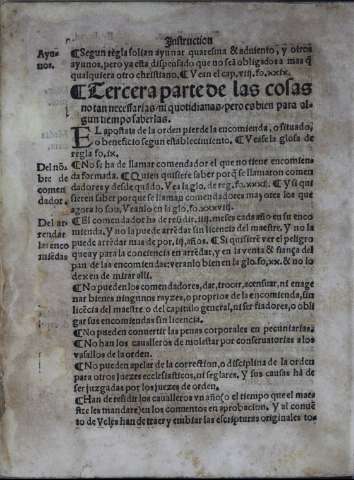 Instruction
Ayu-
nos.
¶Segun regla solian ayunar quaresma & aduiento, y otros
ayunos, pero ya esta dispensado que no seā obligados a mas q̄
qualquiera otro christiano. ¶Vean el cap. viij. fo. xxix.
¶Tercera parte de las cosas
no tan necessarias, ni quotidianas, pero es bien para al-
gun tiempo saberlas.
EL apostata de la orden pierde la encomienda, o situado,
o beneficio segun establecimiento. ¶Vease la glosa de
regla fo. ix.
Del nō-
bre de
comen
dador.
¶No se ha de llamar comendador el que no tiene encomien
da formada. ¶Quien quisiere saber por q̄ se llamaron comen
dadores y desde quādo. Vea la glo. de reg. fo. xxxij. ¶Y si qui
sieren saber por que se llaman comendadores mayores los que
agora lo son, Veanlo en la glo. fo. xxxviij.
Del ar-
rendar
las enco
miēdas
¶El comendador ha de residir. iiij. meses cada año en su enco
mienda, Y no la puede arrēdar sin licencia del maestre. Y no la
puede arrēdar mas de por. iij. años. ¶Si quisierē ver el peligro
que ay para la conciencia en arrēdar, y en la venta & fiança del
pan de las encomiendas: veranlo bien en la glo. fo. xx. & no lo
dexen de mirar alli.
¶No pueden los comendadores, dar, trocar, acensuar, ni enage
nar bienes ningunos rayzes, o proprios de la encomienda, sin
licēcia del maestre o del capitulo general, ni ser fiadores, o obli
gar sus encomiendas sin licencia.
¶No pueden conuertir las penas corporales en pecuniarias.
¶No han los caualleros de molestar por conseruatorias a los
vasallos de la orden.
¶No pueden apelar de la correction, o disciplina de la orden
para otros juezes ecclesiasticos, ni seglares, Y sus causas hā de
ser juzgadas por los juezes de orden.
¶Han de residir los caualleros vn año (o el tiempo que el maes
tre les mandare) en los conuentos en aprobacion, Y al conuē
to de Veles han de traer y embiar las escripturas originales to-